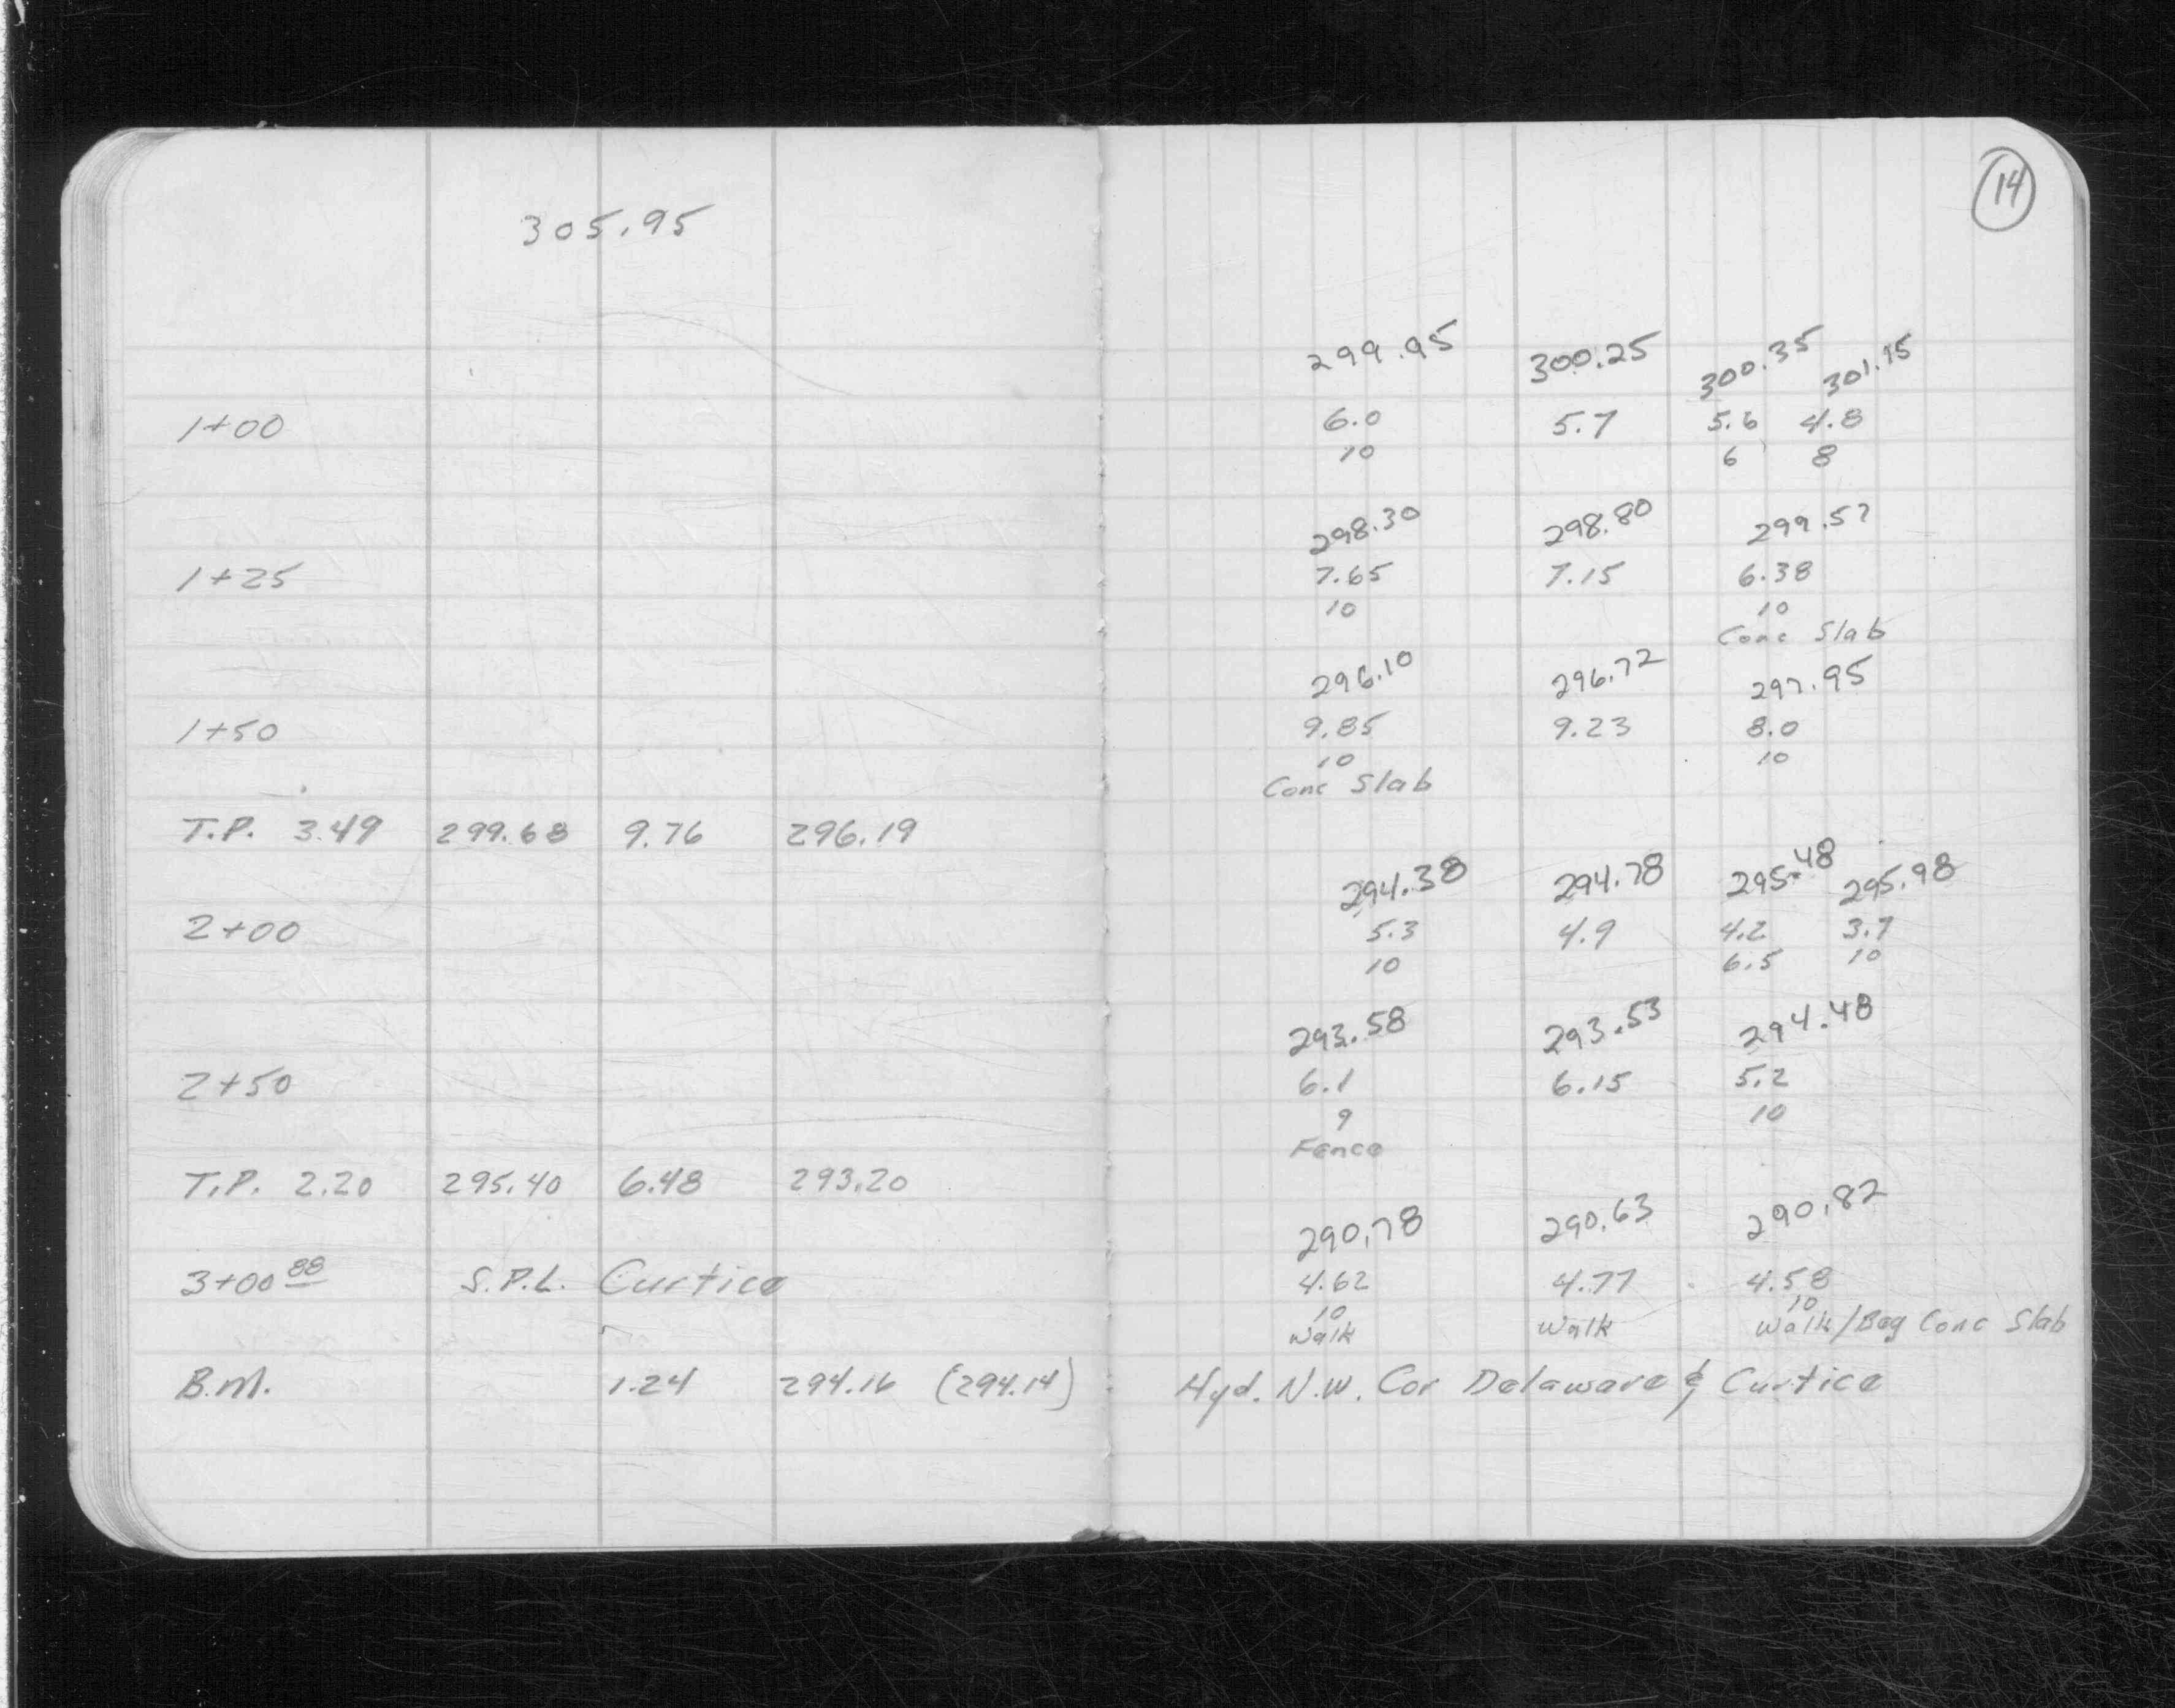 305.95
1+00
1+25
1+50
T.P. 3.49 299.68 9.76 296.19
2+00
2+50
T.P. 2.20 295.40 6.48 293.20
3+00 88 S.P.L. Curtice
B.M. 1.24 294.16 (294.14)
14
299.95 300.25 300.35 301.15
6.0 5.7 5.6 4.8
10 6 8
298.30 298.80 299.57
7.65 7.15 6.38
10 10
Conc Slab
296.10 296.72 297.95
9.85 9.23 8.0
10 10
Conc Slab
294.38 294.78 295.48 295.98
5.3 4.9 4.2 3.7
10 6.5 10
293.58 293.53 294.48
6.1 6.15 5.2
9 10
Fence
290.78 290.63 290.82
4.62 4.77 4.58
10 10
Walk Walk Walk/Beg Conc Slab
Hyd. N.W. Cor Delaware & Curtice